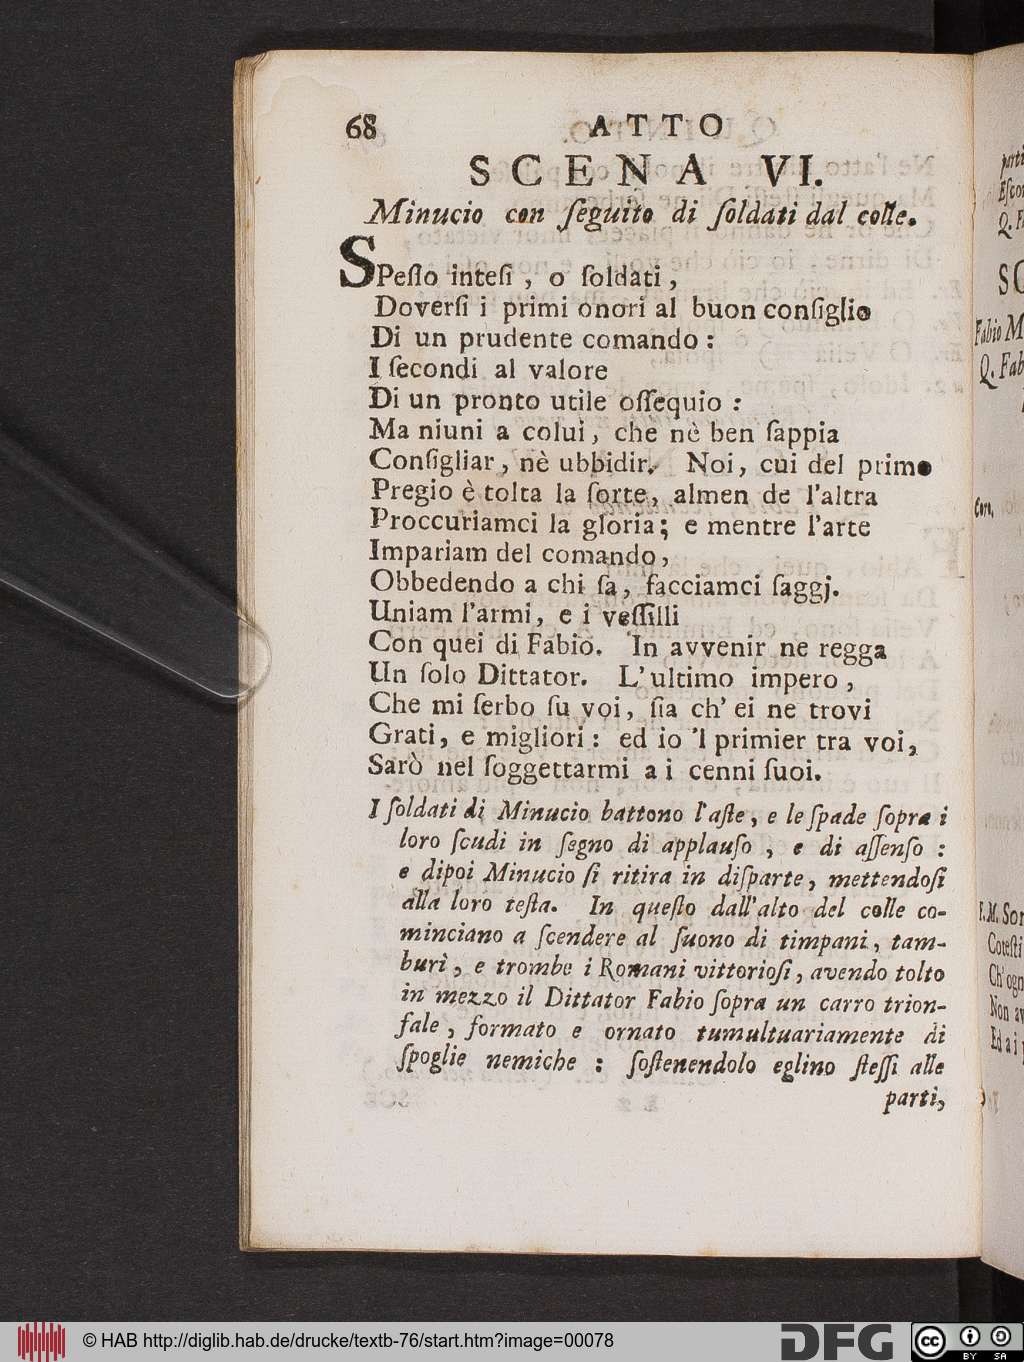 68 ATTO
SCENA VI.
Minucio con ſeguito di ſoldati dal colle.
SPeſſo inteſi, o ſoldati,
Doverſi i primi onori al buon conſiglio
Di un prudente comando:
I ſecondi al valore
Di un pronto utile oſſequio:
Ma niuni a colui, che nè ben ſappia
Conſigliar, nè ubbidir. Noi, cui del primo
Pregio è tolta la ſorte, almen de l'altra
Proccuriamci la gloria; e mentre l'arte
Impariam del comando,
Obbedendo a chi ſa, facciamci ſaggj.
Uniam l'armi, e i veſſilli
Con quei di Fabio. In avvenir ne regga
Un ſolo Dittator. L'ultimo impero,
Che mi ſerbo ſu voi, ſia ch'ei ne trovi
Grati, e migliori: ed io 'l primier tra voi,
Sarò nel ſoggettarmi a i cenni ſuoi.
I ſoldati di Minucio battono l'aſte, e le ſpade ſopra i
loro ſcudi in ſegno di applauſo, e di aſſenſo:
e dipoi Minucio ſi ritira in diſparte, mettendoſi
alla loro teſta. In queſto dall'alto del colle co-
minciano a ſcendere al ſuono di timpani, tam-
buri, e trombe i Romani vittorioſi, avendo tolto
in mezzo il Dittator Fabio ſopra un carro trion-
fale, formato e ornato tumultuariamente di
ſpoglie nemiche: ſoſtenendolo eglino ſteſſi alle
parti,
parti
Eſcon
Q. F
SC
Fabio M
Q. Fab
Coro.
F. M. Sor
Coteſti
Ch'ogn
Non av
Ed a i
© HAB http://diglib.hab.de/drucke/textb-76/start.htm?image=00078
DFG
cc BY SA